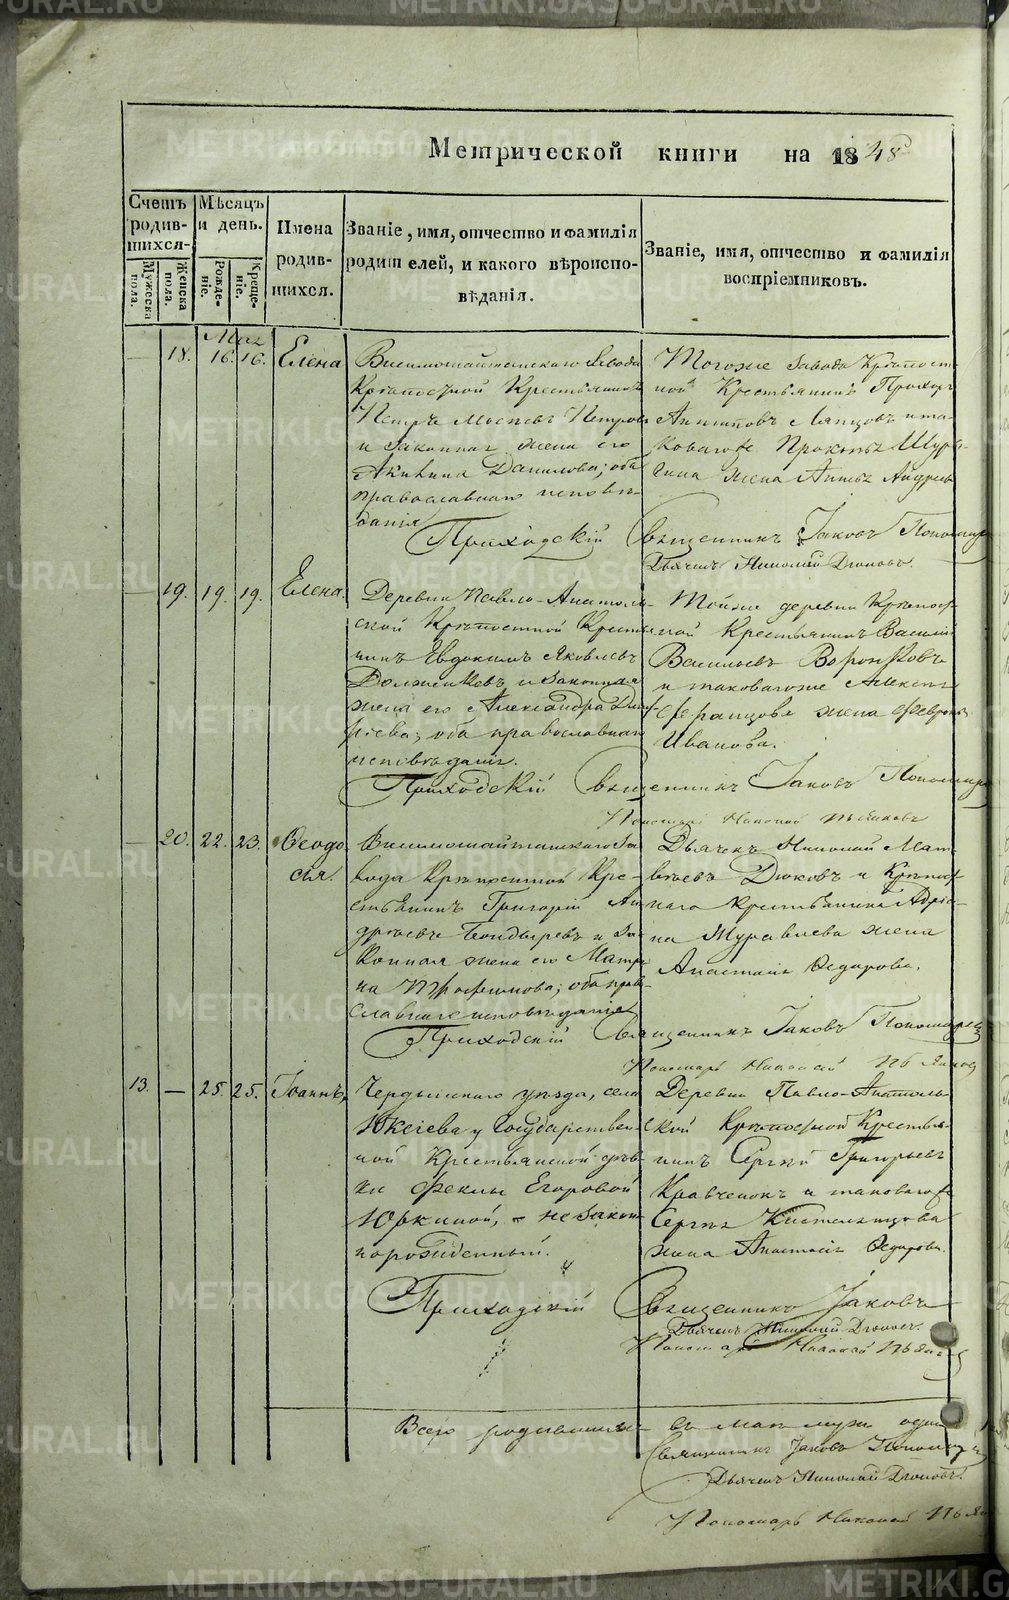 METRIKI.GASO-URAL.RU
Метрической книги на 1848
Счетъ родив-шихся.
Мужеска пола.
Женска пола.
Мѣсяцъ и день.
Рожде-ніе.
Креще-ніе.
Имена родив-шихся.
Званіе, имя, отчество и фамилія родителей, и какого вѣроиспо-вѣданія.
Званіе, имя, отчество и фамилія воспріемниковъ.
— 18. 16. 16. Елена
Висимошайтанскаго завода
Крѣпостной Крестьянинъ
Петръ Петровъ
и законная жена его
Акилина Данилова; оба
православнаго исповѣ-
данія
Тогоже завода Крѣпост-
ной Крестьянинъ Прохоръ
Антиповъ и та-
коваго
жена Анна Андреева
Приходскій Священникъ Іаковъ Пономарев
Дьячекъ Николай Дюковъ.
— 19. 19. 19. Елена.
Деревни Павло-Анатоль-
ской Крѣпостной Кресть
нинъ Евдокимъ Яковлевъ
и законная
жена его Александра
оба православнаго
исповѣданія.
Тойже деревни Крѣпост-
ной Крестьянинъ Василій
Васильевъ Воронковъ
и таковагоже
жена Февронья
Иванова.
Приходскій Священникъ Іаковъ Пономарев
Пономарь Николай
— 20. 22. 23. Ѳеодо
сья.
Висимошайтанскаго за
вода Крѣпостной Кре-
стьянинъ Григорій Ан
дреевъ Бондыревъ и за
конная жена его Матре
на оба пра
славнаго исповѣданія
Дьячекъ Николай Мат-
вѣевъ Дюковъ и Крѣпост
наго Крестьянина Адріа-
на Журавлева жена
Анастасія Ѳедорова.
Приходскій Священникъ Іаковъ Пономарев
Пономарь Николай
13. — 25. 25. Іоаннъ,
Чердынскаго уѣзда, села
у Государствен-
ной Крестьянской дѣв-
ки Феклы Егоровой
Юркиной, незакон
норожденный.
Деревни Павло-Анатоль-
ской Крѣпостной Крестья-
нинъ Сергѣй Григорьевъ
Кравченокъ и таковагоже
Сергѣя
жена Анастасія Ѳедорова.
Приходскій Священникъ Іаковъ
Дьячекъ Николай Дюковъ.
Пономарь Николай
Всего родившихся въ маѣ муж. один
Священникъ Іаковъ Пономарев
Дьячекъ Николай Дюковъ.
Пономарь Николай